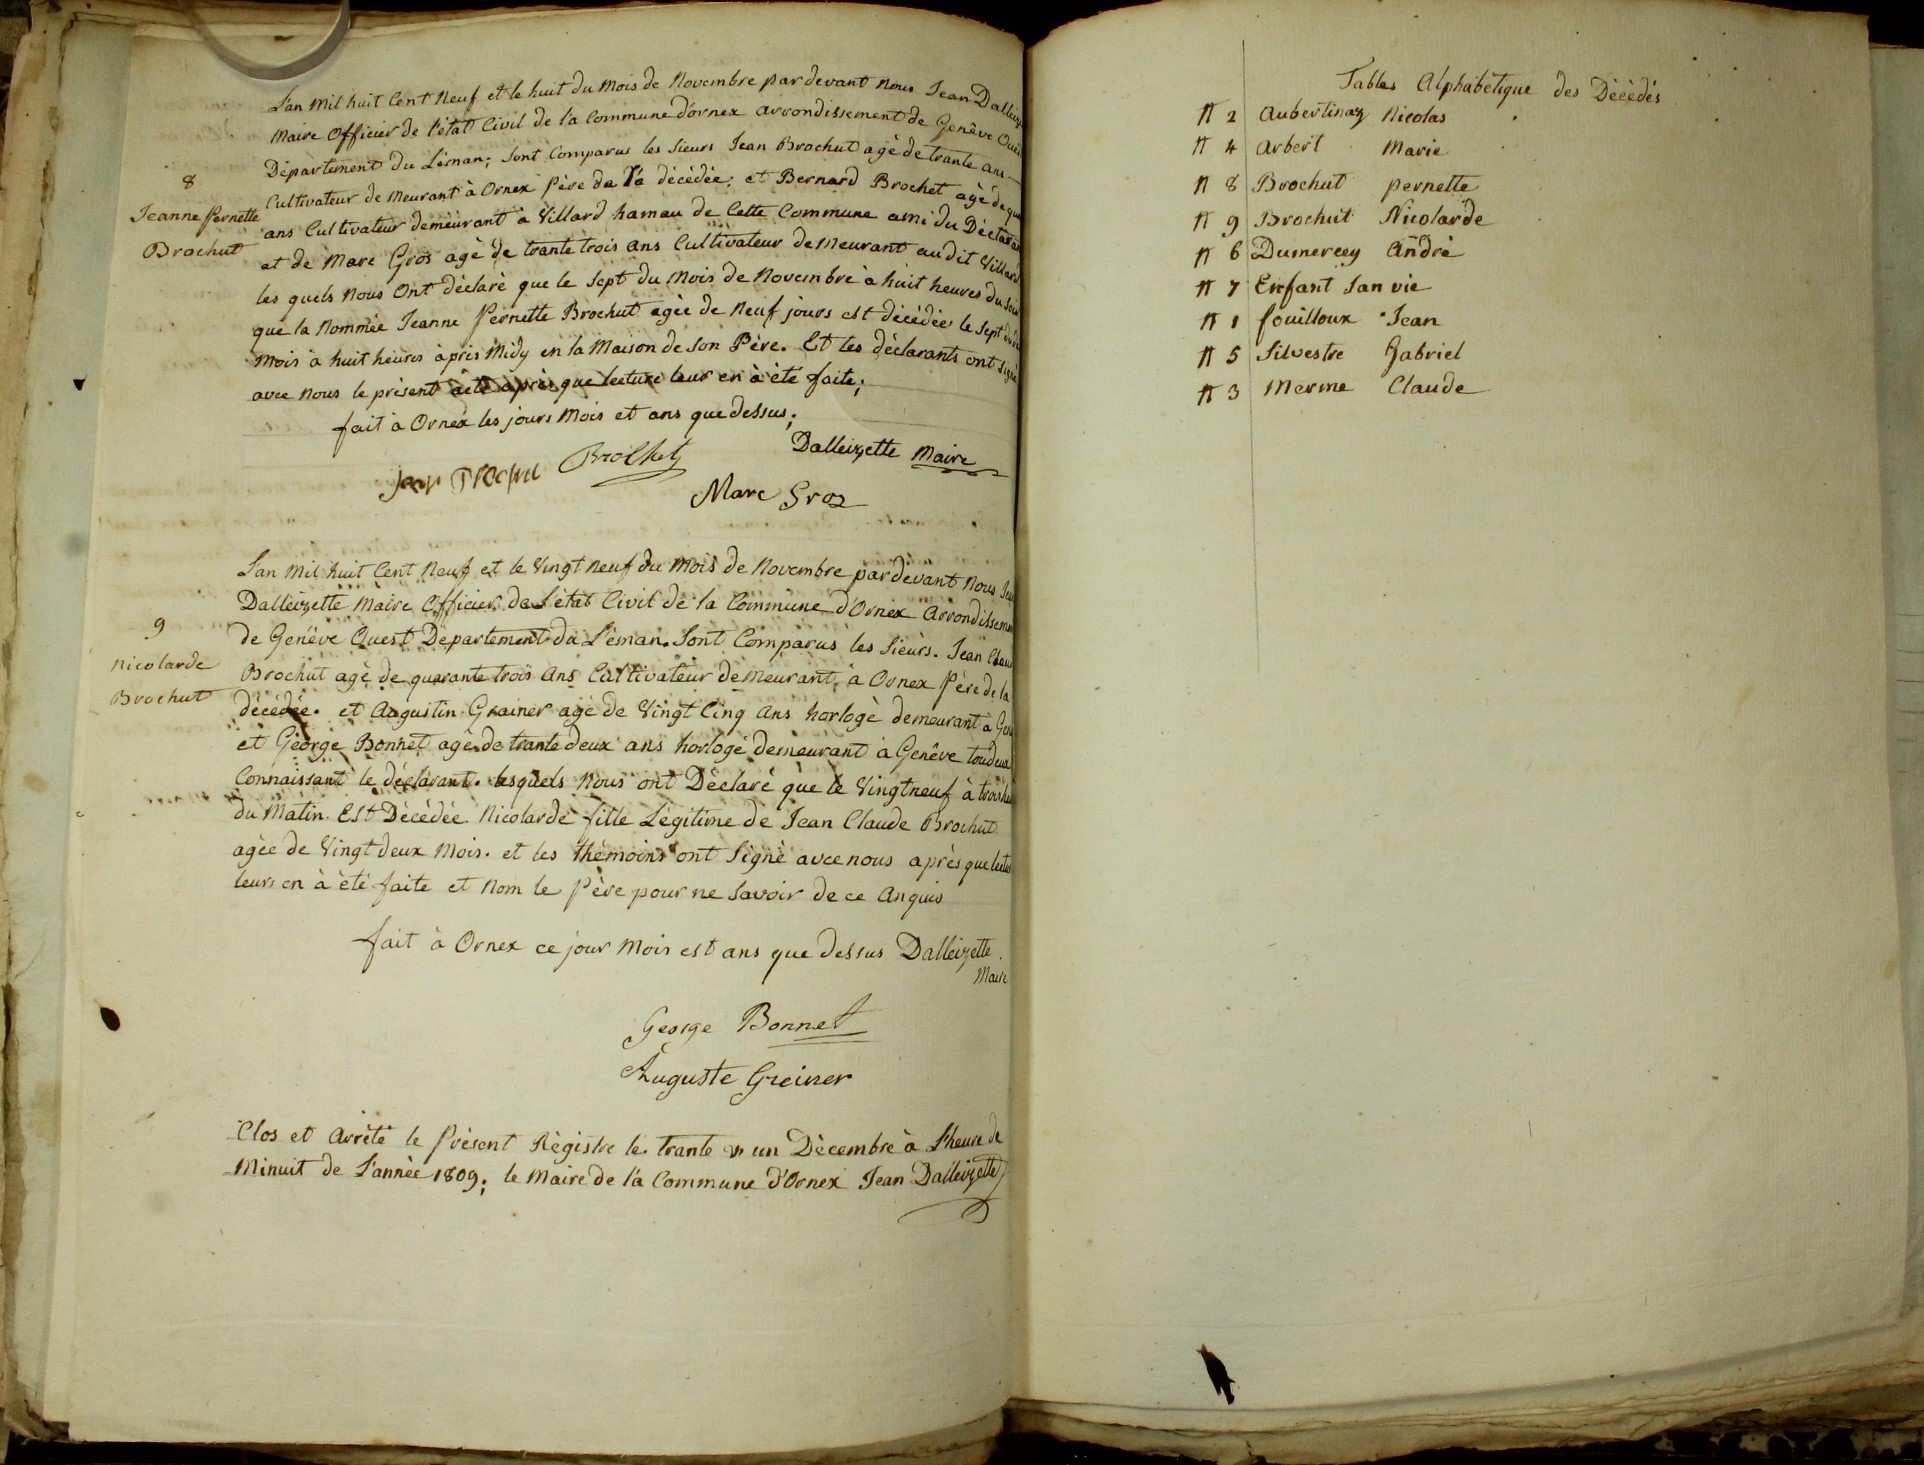 L'an Mil huit Cent Neuf et le huit du Mois de Novembre par devant Nous Jean
Maire Officier de l'état Civil de la Commune d'ornex arrondissement de Genêve
Département du Léman; Sont Comparus les Sieurs Jean Brochut agé de trante ans
8
Cultivateur de Meurant à Ornex Père de la décédée; et Bernard Brochet agè de
Jeanne Pernette
ans Cultivateur demeurant à Villard hamau de Cette Commune ami du
Brochut
et de Marc Gros agè de trante trois ans Cultivateur de Meurant au dit Villard
les quels Nous Ont déclaré que le Sept du Mois de Novembre à huit heures du Soir
que la Nommée Jeanne Pernette Brochut agèe de Neuf jours est décédée le Sept
Mois à huit heures àprès Midy en la Maison de Son Père. Et les déclarants ont Signé
avec Nous le présent acte après que lecture leur en à èté faite;
fait à Ornex les jours Mois et ans que dessus;
Dalleizette Maire
Brochet
Marc Gros
L'an Mil huit Cent Neuf et le Vingt neuf du Mois de Novembre par dèvant Nous
Dalleizette Maire Officier de L'état Civil de la Commune d'Ornex
9
de Genêve Ouest Département du Léman. Sont Comparus les Sieurs. Jean
Nicolarde
Brochut agè de quarante trois Ans Cultivateur de Meurant à Ornex Père de la
Brochut
décédée. et Augustin Grainer agé de Vingt Cinq Ans horlogè demeurant à
et Géorge Bonnet agè de trante deux ans horlogé demeurant à Genêve
Connaissant le déclarant. lesquels Nous ont Dèclaré que le Vingtneuf à trois
du Matin Est Décédée Nicolarde fille Légitime de Jean Claude Brochut
agèe de Vingt deux Mois. et les thémoins ont Signè avec nous après que
leurs en à èté faite et Nom le Père pour ne Savoir de ce Anquis
fait à Ornex ce jour Mois est ans que dessus Dalleizette
Maire
George Bonnet
Auguste Greiner
Clos et Arrêté le Présent Règistre le trante un Dècembre à l'heure de
Minuit de L'annèe 1809; le Maire de la Commune d'Ornex Jean Dalleizette
Tables Alphabètique des Dècèdès
N 2 Aubertinaz Nicolas
N 4 Arbert Marie
N 8 Brochut pernette
N 9 Brochut Nicolarde
N 6 Dumercey Andrè
N 7 Enfant San vie
N 1 fouilloux Jean
N 5 Silvestre Gabriel
N 3 Merme Claude